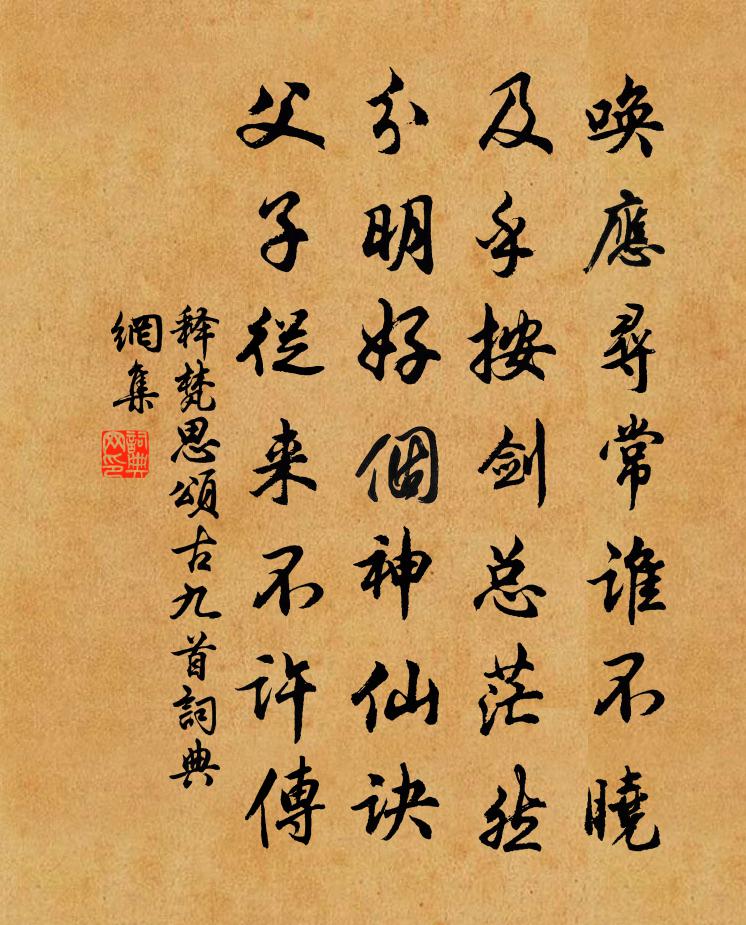 喚應尋常誰不曉
及乎按剑总茫然
分明好個神仙诀
父子從来不许傳
释梵思頌古九首詞典
網集
詞典
网印